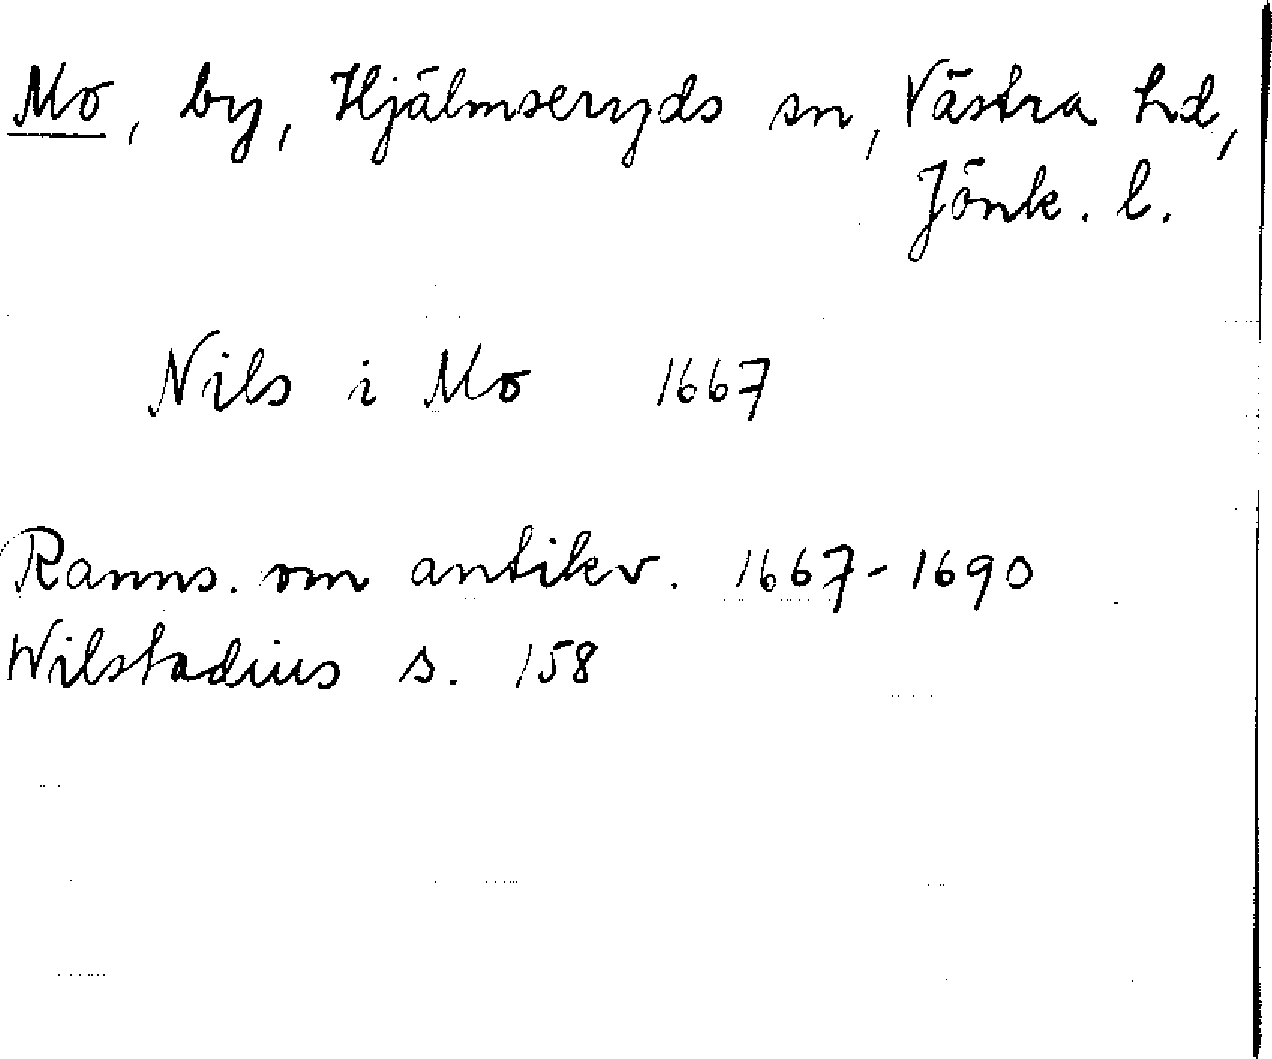 Mo, by, Hjälmseryds sn, Västra hd,
Jönk. l.
Nils i Mo 1667
Ranns. om antikv. 1667-1690
Wilstadius s. 158